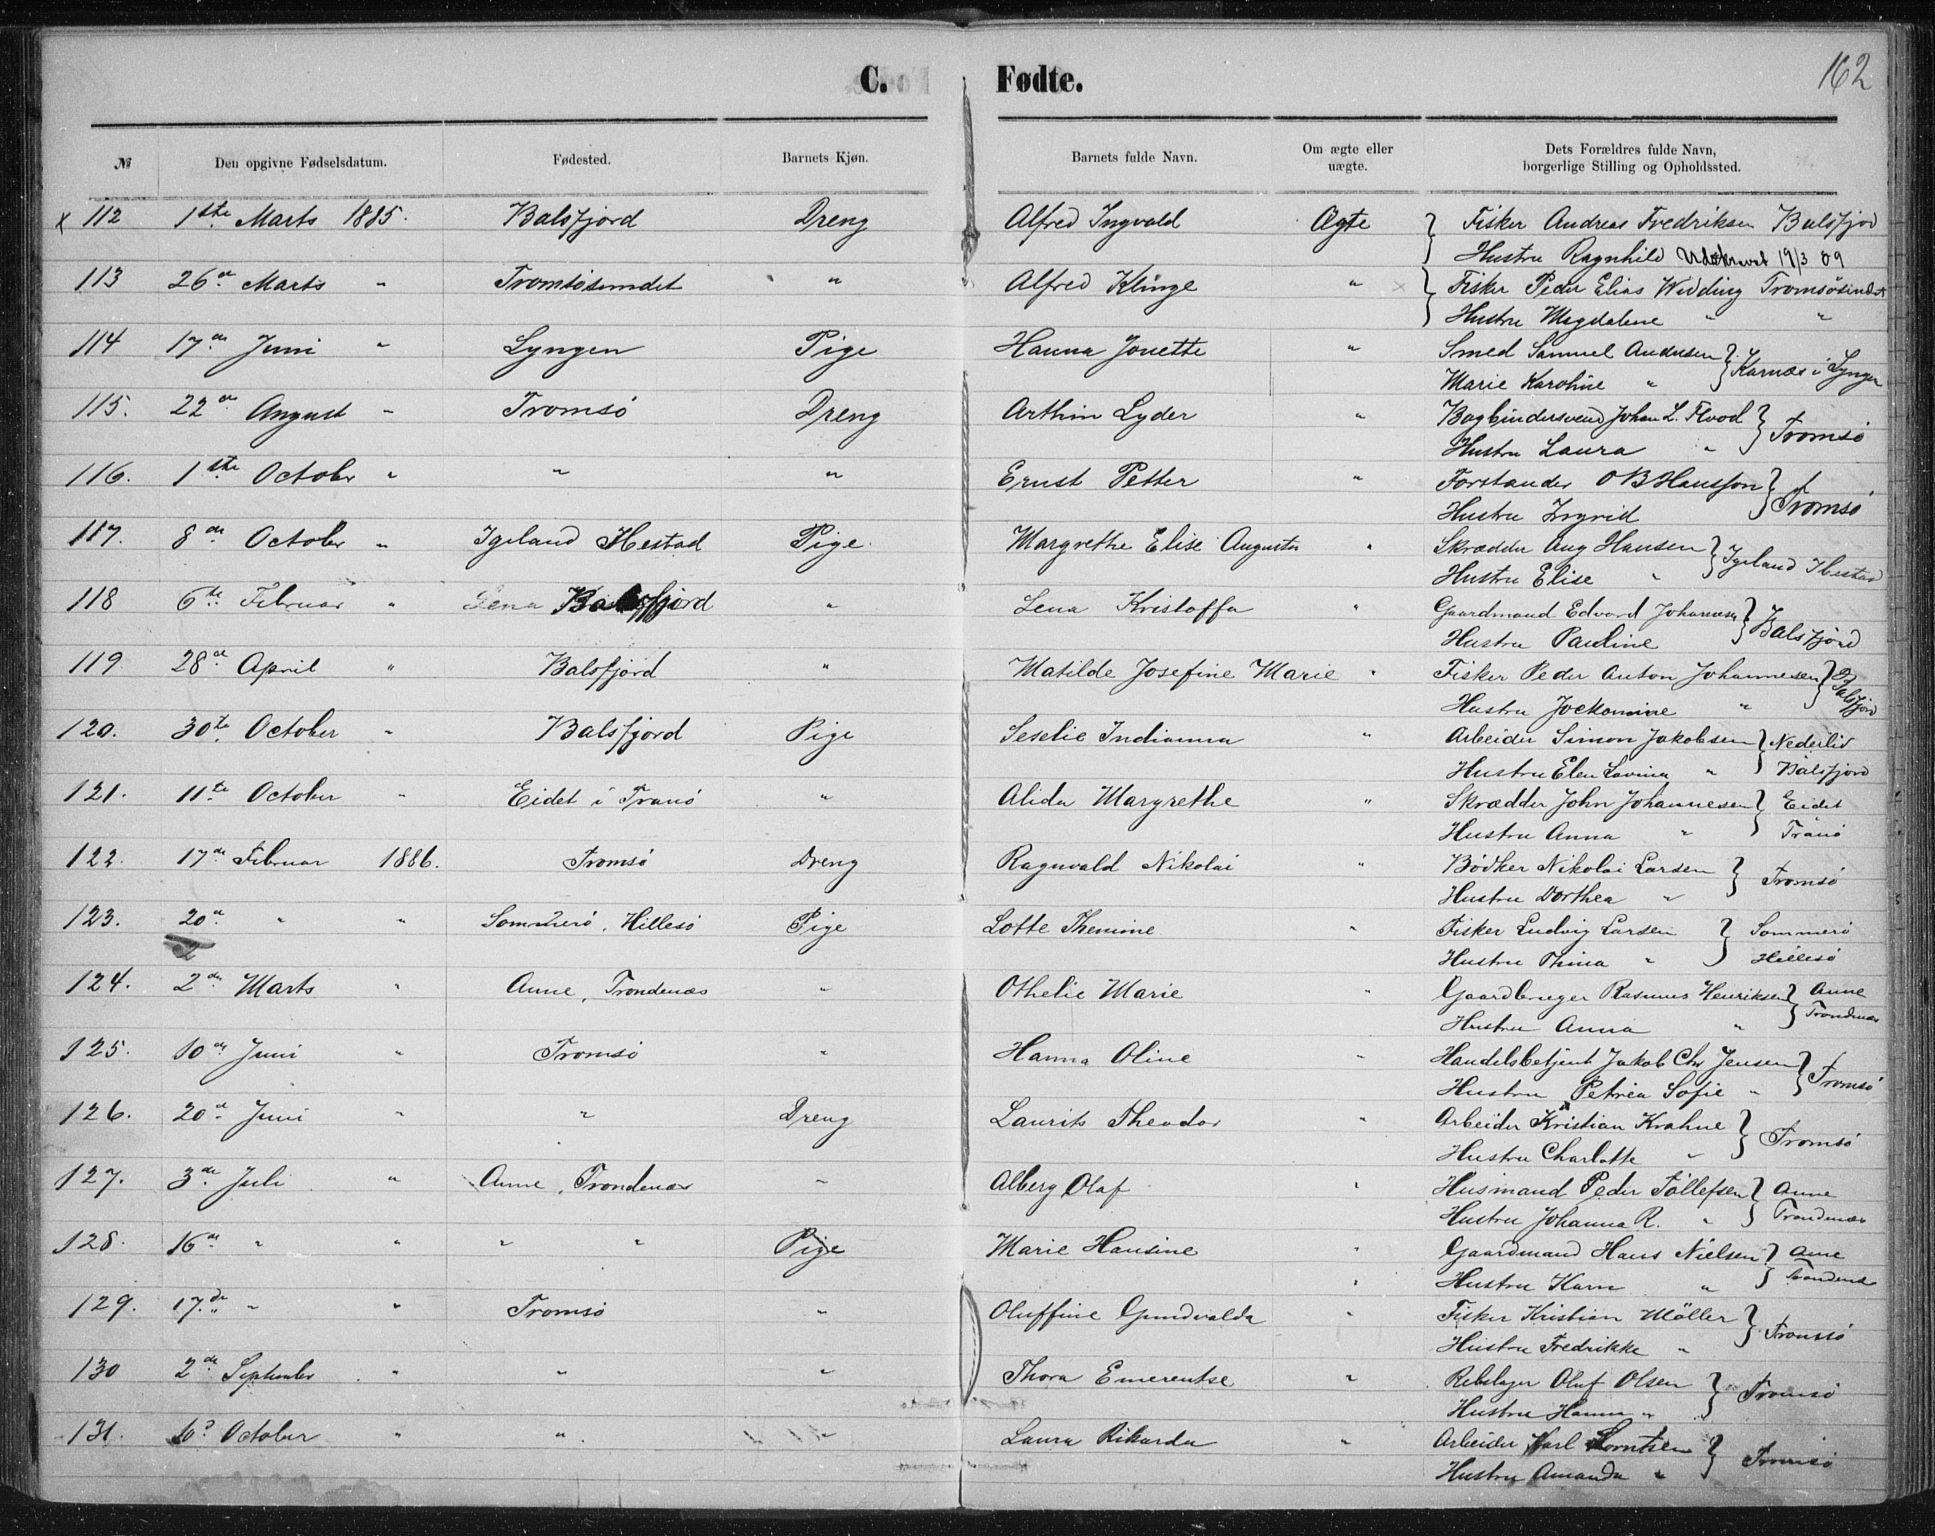 162
C. Fødte.
№ Den opgivne Fødselsdatum. Fødested. Barnets Kjøn. Barnets fulde Navn. Om ægte eller uægte. Dets Forældres fulde Navn, borgerlige Stilling og Opholdssted.
x 112 1ste Marts 1885. Balsfjord Dreng Alfred Ingvald Ægte } Fisker Andreas Fredriksen Balsfjor
Hustru Ragnhild Udskrevet 19/3 09
113 26de Marts " Tromsøsundet " Alfred Klinge " x } Fisker Peder Elias Widding Tromsøsundet
Hustru Magdalene " "
114 17de Juni " Lyngen Pige Hanna Jonette " Smed Samuel Andersen } Karnæs i Lyngen
Marie Karoline "
115. 22de August " Tromsø Dreng Arthur Lyder " Bogbindersvend Johan L. Flood } Tromsø
Hustru Laura "
116. 1ste October " " " Ernst Petter " Forstander O B Hansson } Tromsø
Hustru Ingrid
117. 8de October " Igeland Hestad Pige. Margrethe Elise Augusta " Skrædder Aug Hansen } Igeland Ibestad
Hustru Elise "
118 6te Februar " Lena Balsfjord " Lena Kristoffa " Gaardmand Edvard Johannesen } Balsfjord
Hustru Pauline
119. 28de April " Balsfjord " Matilde Josefine Marie " Fisker Peder Anton Johannesen } Balsfjord
Hustru Jockomine "
120. 30te October " Balsfjord Pige Seselie Indianna " Arbeider Simon Jakobsen } Nederlid
Hustru Elen Lovina " Balsfjord
121. 11te October " Eidet i Tranø " Alida Margrethe " Skrædder John Johannesen } Eidet
Hustru Anna " Tranø
122. 17de Februar 1886. Tromsø Dreng Ragnvald Nikolai " Bødker Nikolai Larsen } Tromsø
Hustru Dorthea "
123. 20de " " Sommerø, Hillesø Pige Lotte Thenime " Fisker Ludvig Larsen } Sommerø
Hustru Thina " Hillesø
124. 2den Marts " Anne, Trondenæs " Othelie Marie " Gaardbruger Rasmus Henriksen } Anne
Hustru Anna " Trondenæs
125. 10de Juni " Tromsø " Hanna Oline " Handelsbetjent Jakob Chr Jensen } Tromsø
Hustru Petrea Sofie "
126. 20de Juni " " Dreng Laurits Theodor " Arbeider Kristian Krahne } Tromsø
Hustru Charlotte "
127. 3de Juli " Anne, Trondenæs " Alberg Olaf " Husmand Peder Tollefsen } Anne
Hustru Johanna R. " Trondenæs
128. 16de " " " " Pige Marie Hansine " Gaardmand Hans Nielsen } Anne
Hustru Karn " Trondenæs
129. 17.de " " Tromsø " Oluffine Gundvalda " Fisker Kristian Möller } Tromsø
Hustru Fredrikke "
130 2de September " " " Thora Emerentse " Rebslager Oluf Olsen } Tromsø
Hustru Hanna "
131. 10d October " " Laura Rikarda " Arbeider Karl Lorntsen } Tromsø
Hustru Amanda "